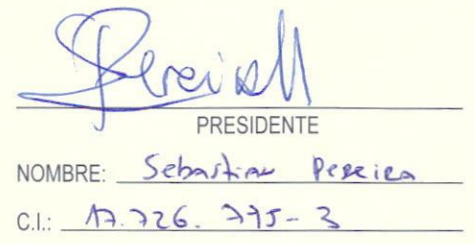 Pereira
PRESIDENTE
NOMBRE: Sebastian Pereira
C.I.: 17.726.775-3